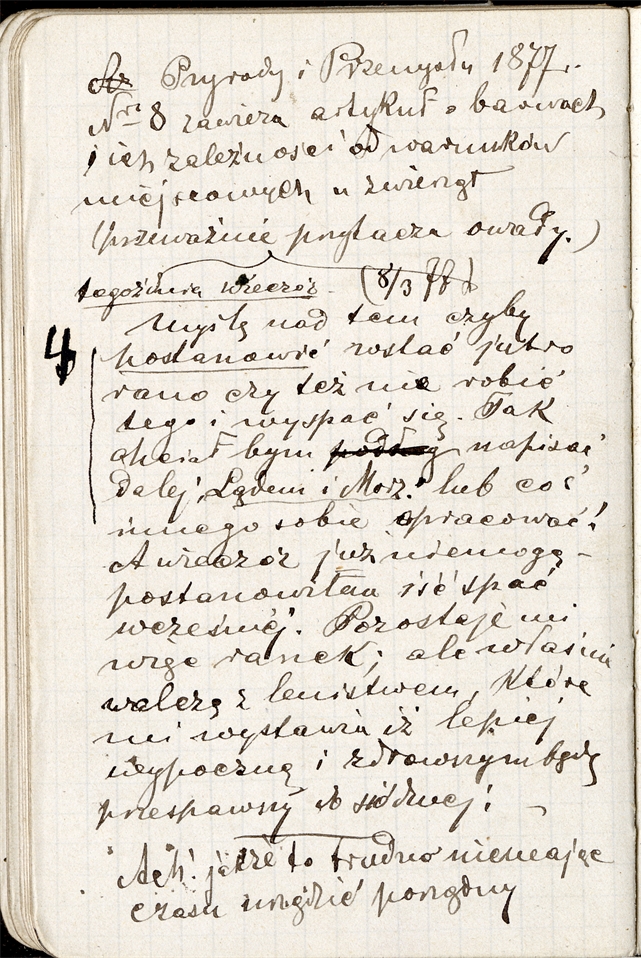 Przyrody i Przemysłu 1877.
Nrr 8 zawiera artykuł o barwach
i ich zależności od warunków
miejscowych u zwierząt
(przeważnie przytacza owady.)
tegoż dnia wieczór. (8/3 77)
4 Myślę nad tem czyby
postanowić wstać jutro
rano czy też nie robić
tego i wyspać się. Tak
chciał bym napisać
dalej "Lądem i Morz." lub coś
innego sobie opracować!
A wieczór już niemogę –
postanowiłem iść spać
wcześniej. Pozostaje mi
więc ranek; ale właśnie
walczę z lenistwem, które
mi wystawia iż lepiej
wypocznę i zdrowszym będę
przespawszy do siódmej!
Ach! jakże to trudno niemając
czasu urządzić porządny